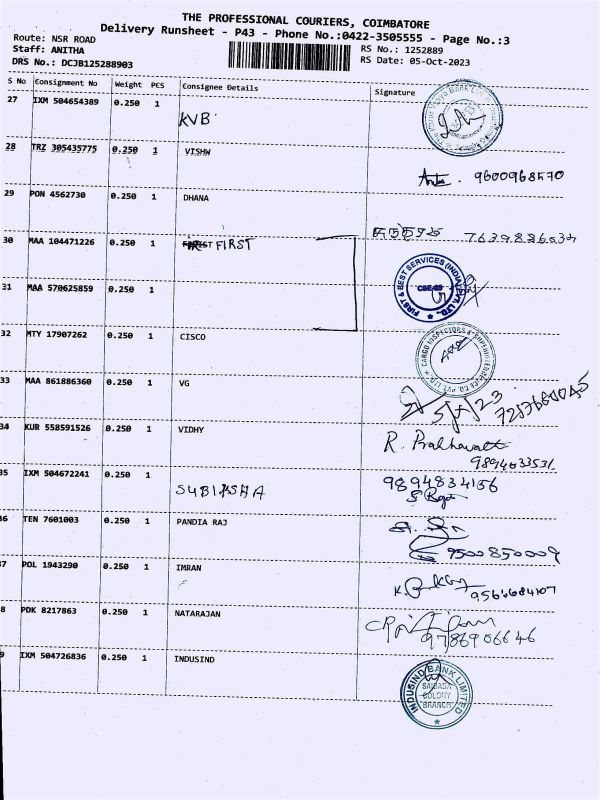 THE PROFESSIONAL COURIERS, COIMBATORE
Delivery Runsheet - P43 - Phone No.:0422-3505555 - Page No.:3
Route: NSR ROAD
Staff: ANITHA
DRS No.: DCJB125288903
RS No.: 1252889
RS Date: 05-Oct-2023
S No Consignment No Weight PCS Consignee Details Signature
27 IXM 504654389 0.250 1 KVB
28 TRZ 305435775 0.250 1 VISHW
9600968570
29 PON 4562730 0.250 1 DHANA
30 MAA 104471226 0.250 1 FIRST
FIRST & BEST SERVICES (INDIA) PVT. LTD.
31 MAA 570625859 0.250 1
32 MTY 17907262 0.250 1 CISCO
33 MAA 861886360 0.250 1 VG
34 KUR 558591526 0.250 1 VIDHY
R.
35 IXM 504672241 0.250 1
9894834156
36 TEN 7601003 0.250 1 PANDIA RAJ
9500850009
7 POL 1943290 0.250 1 IMRAN
8 PDK 8217863 0.250 1 NATARAJAN
9786906646
9 IXM 504726836 0.250 1 INDUSIND
INDUSIND BANK LIMITED
SAIBABA
COLONY
BRANCH